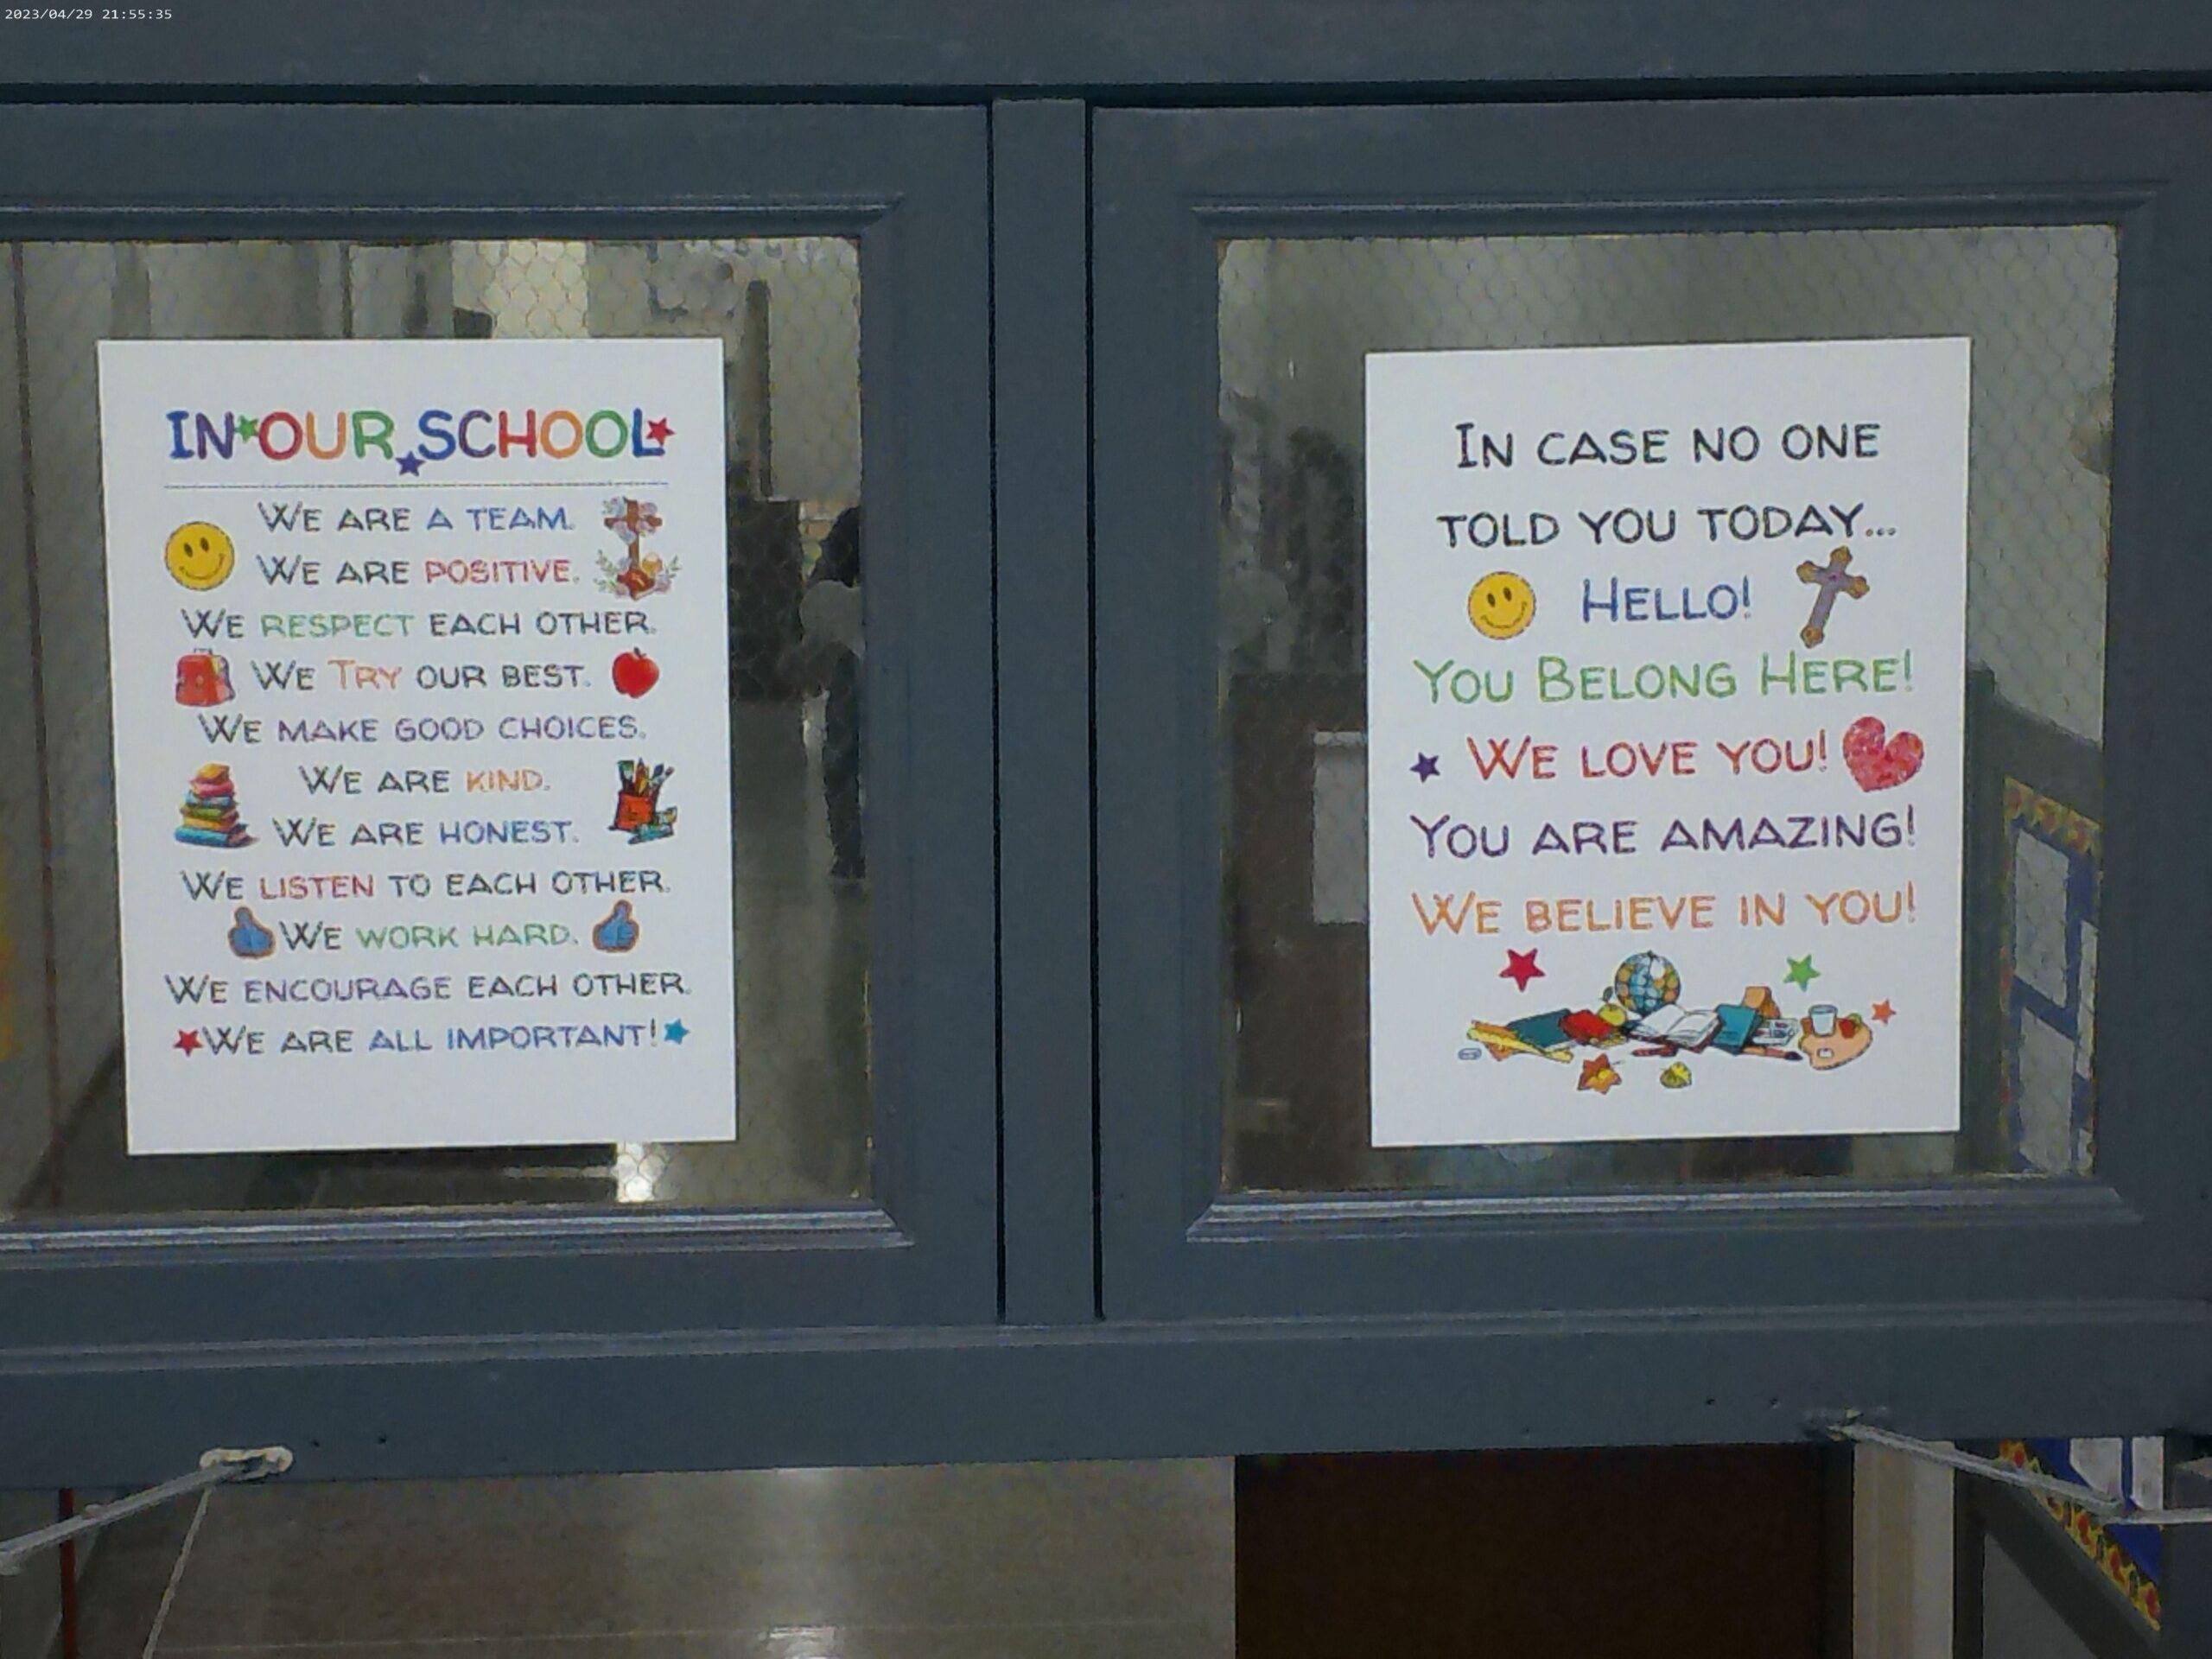 2023/04/29 21:55:35
IN OUR SCHOOL
WE ARE A TEAM.
WE ARE POSITIVE.
WE RESPECT EACH OTHER.
WE TRY OUR BEST.
WE MAKE GOOD CHOICES.
WE ARE KIND.
WE ARE HONEST.
WE LISTEN TO EACH OTHER.
WE WORK HARD.
WE ENCOURAGE EACH OTHER.
WE ARE ALL IMPORTANT!
IN CASE NO ONE
TOLD YOU TODAY...
HELLO!
YOU BELONG HERE!
WE LOVE YOU!
YOU ARE AMAZING!
WE BELIEVE IN YOU!